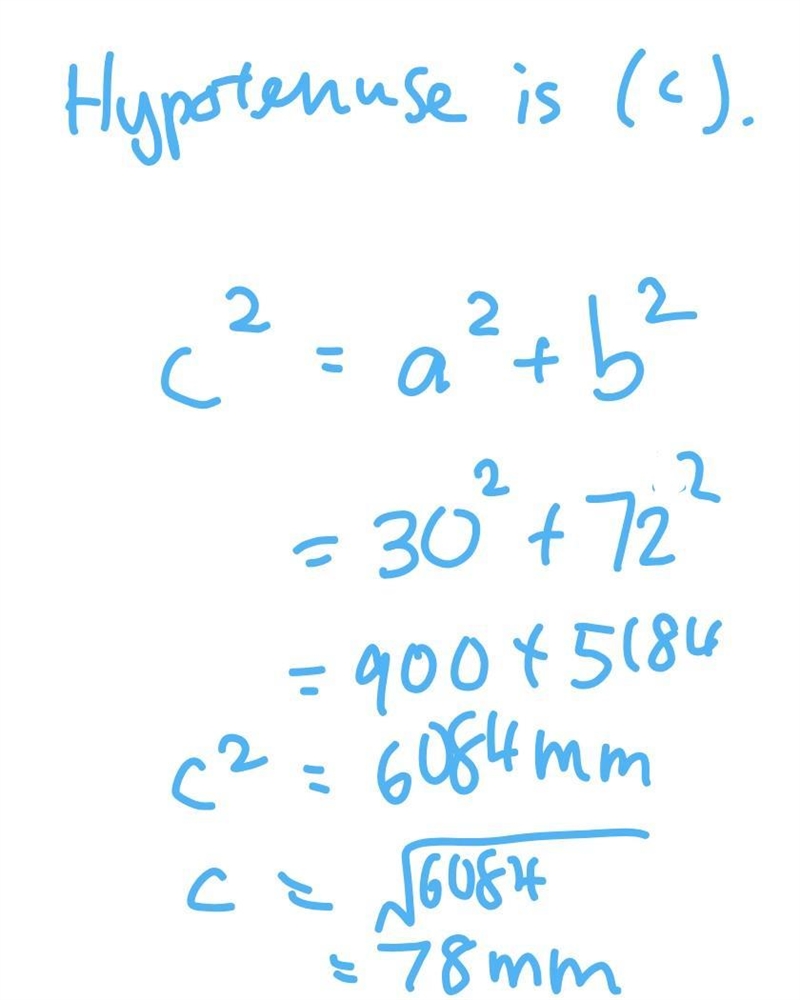 Hypotenuse is (c).
c² = a² + b²
= 30² + 72²
= 900 + 5184
c² = 6084mm
c = √6084
= 78mm